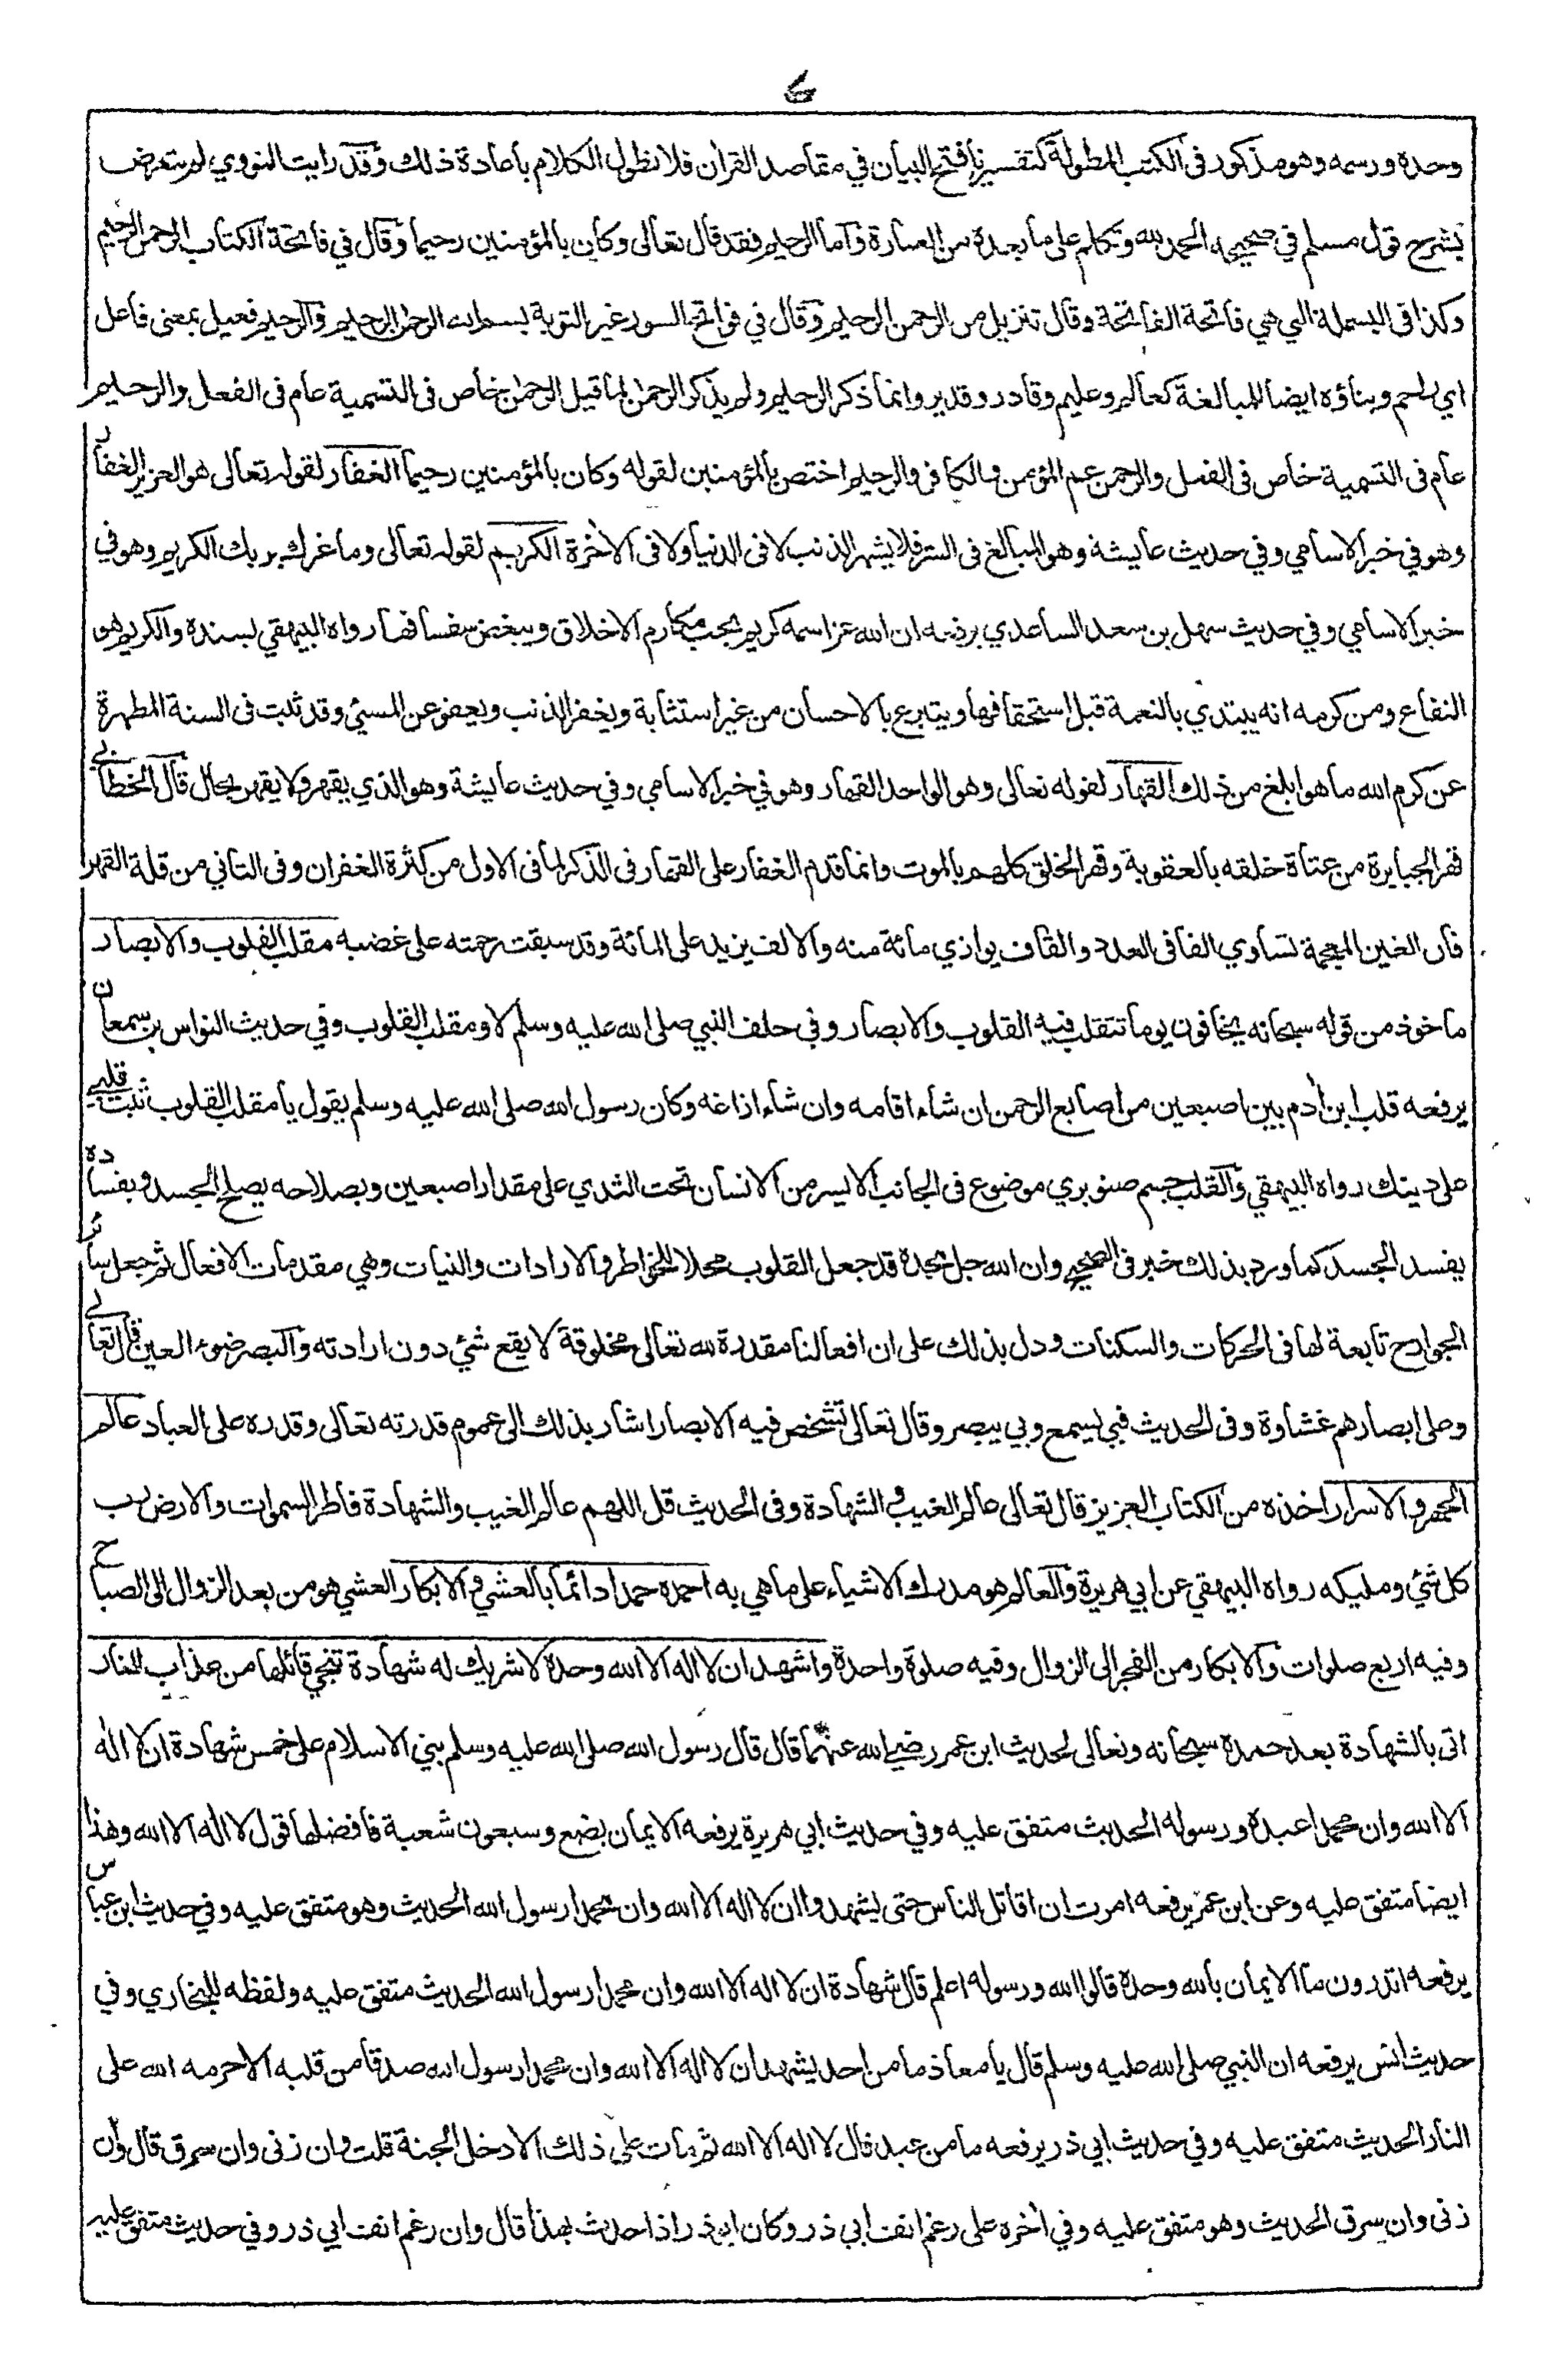 ٦
وحده ورسمه وهو مذكور فى الكتب المطولة كتفسيرنا فتح البيان في مقاصد القرأن فلا نطول الكلام باعادة ذلك وقد رايت النووي لم يتعرض
بشرح قول مسلم في صحيحه الحمد لله وتكلم على ما بعده من العبارة وآما الرحيم فقد قال تعالى وكان بالمؤمنين رحيما وقال في فاتحة الكتاب الرحمن الرحيم
وكذا فى البسملة التي هي فاتحة الفاتحة وقال تنزيل من الرحمن الرحيم وقال في فواتح السور غير التوبة بسم الله الرحمن الرحيم والرحيم فعيل بمعنى فاعل
اي راحم وبناؤه ايضا للمبالغة كعالم وعليم وقادر وقدير وانما ذكر الرحيم ولم يذكر الرحمن لما قيل الرحمن خاص فى التسمية عام فى الفعل والرحيم
عام فى التسمية خاص فى الفعل والرحمن عم المؤمن والكافر والرحيم اختص بالمؤمنين لقوله وكان بالمؤمنين رحيما الغفار لقوله تعالى هو العزيز الغفار
وهو في خبر الاسامي وفي حديث عايشة وهو المبالغ فى الستر فلا يشهر الذنب لا فى الدنيا ولا فى الاخرة الكريم لقوله تعالى وما غرك بربك الكريم وهو في
خبر الاسامي وفي حديث سهل بن سعد الساعدي يرفعه ان الله عز اسمه كريم يحب مكارم الاخلاق ويبغض سفسافها رواه البيهقي بسنده والكريم هو
النفاع ومن كرمه انه يبتدي بالنعمة قبل استحقاقها ويتبرع بالاحسان من غير استثابة ويغفر الذنب ويعفو عن المسئ وقد ثبت فى السنة المطهرة
عن كرم الله ما هو ابلغ من ذلك القهار لقوله تعالى وهو الواحد القهار وهو في خبر الاسامي وفي حديث عايشة وهو الذي يقهر ولا يقهر بحال قال الخطابي
قهر الجبابرة من عتاة خلقه بالعقوبة وقهر الخلق كلهم بالموت وانما قدم الغفار على القهار فى الذكر لما فى الاول من كثرة الغفران وفى الثاني من قلة القهر
فان الغين المعجمة تساوي الفا فى العدد والقاف يوازي مائة منه والالف يزيد على المائة وقد سبقت رحمته على غضبه مقلب القلوب والابصار
ماخوذ من قوله سبحانه يخافون يوما تتقلب فيه القلوب والابصار وفي حلف النبي صلى الله عليه وسلم لا ومقلب القلوب وفي حديث النواس بن سمعان
يرفعه قلب ابن أدم بين اصبعين من اصابع الرحمن ان شاء اقامه وان شاء ازاغه وكان رسول الله صلى الله عليه وسلم يقول يا مقلب القلوب ثبت قلبي
على دينك رواه البيهقي والقلب جسم صنوبري موضوع فى الجانب الايسر من الانسان تحت الثدي على مقدار اصبعين وبصلاحه يصلح الجسد وبفساده
يفسد الجسد كما ورد بذلك خبر فى الصحيح وان الله جل مجده قد جعل القلوب محلا للخواطر والارادات والنيات وهي مقدمات الافعال ثم جعل سائر
الجوارح تابعة لها فى الحركات والسكنات ودل بذلك على ان افعالنا مقدرة لله تعالى مخلوقة لا يقع شئ دون ارادته والبصر ضوء العين قال تعالى
وعلى ابصارهم غشاوة وفى الحديث فبي يسمع وبي يبصر وقال تعالى تشخص فيه الابصار اشار بذلك الى عموم قدرته تعالى وقدره على العباد عالم
الجهر والاسرار اخذه من الكتاب العزيز قال تعالى عالم الغيب والشهادة وفى الحديث قل اللهم عالم الغيب والشهادة فاطر السموات والارض رب
كل شئ ومليكه رواه البيهقي عن ابي هريرة والعالم هو مدرك الاشياء على ما هي به احمده حمدا دائما بالعشي والابكار العشي هو من بعد الزوال الى الصباح
وفيه اربع صلوات والابكار من الفجر الى الزوال وفيه صلوة واحدة واشهد ان لا اله الا الله وحده لا شريك له شهادة تنجي قائلها من عذاب النار
اتى بالشهادة بعد حمده سبحانه وتعالى لحديث ابن عمر رضي الله عنهما قال قال رسول الله صلى الله عليه وسلم بني الاسلام على خمس شهادة ان لا اله
الا الله وان محمدا عبده ورسوله الحديث متفق عليه وفي حديث ابي هريرة يرفعه الايمان بضع وسبعون شعبة فافضلها قول لا اله الا الله وهذا
ايضا متفق عليه وعن ابن عمر يرفعه امرت ان اقاتل الناس حتى يشهدوا ان لا اله الا الله وان محمدا رسول الله الحديث وهو متفق عليه وفي حديث ابن عباس
يرفعه اتدرون ما الايمان بالله وحده قالوا الله ورسوله اعلم قال شهادة ان لا اله الا الله وان محمدا رسول الله الحديث متفق عليه ولفظه للبخاري وفي
حديث انس يرفعه ان النبي صلى الله عليه وسلم قال يا معاذ ما من احد يشهد ان لا اله الا الله وان محمدا رسول الله صدقا من قلبه الا حرمه الله على
النار الحديث متفق عليه وفي حديث ابي ذر يرفعه ما من عبد قال لا اله الا الله ثم مات على ذلك الا دخل الجنة قلت وان زنى وان سرق قال وان
زنى وان سرق الحديث وهو متفق عليه وفي أخره على رغم انف ابي ذر وكان ابو ذر اذا حدث بهذا قال وان رغم انف ابي ذر وفي حديث متفق عليه